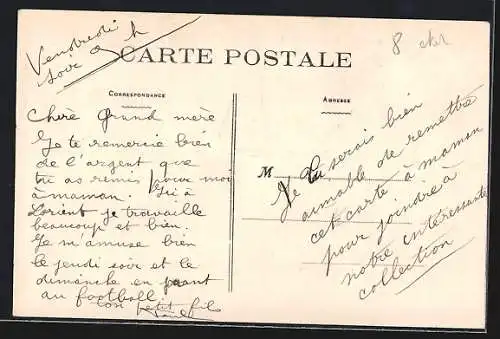 Vendredi
soir 9 h
CARTE POSTALE
CORRESPONDANCE
ADRESSE
Chère Grand mère
Je te remercie bien
de l'argent que
tu as remis pour moi
à maman. Ici à
Lorient je travaille
beaucoup et bien.
Je m'amuse bien
le jeudi soir et le
dimanche en jouant
au football
ton petit fils
M
Tu serais bien
aimable de remettre
cet carte à maman
pour joindre à
notre intéressante
collection